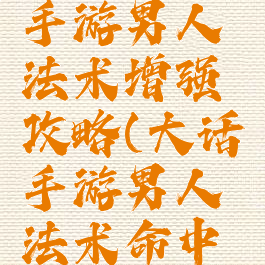 手游男人
法术增强
攻略(大话
手游男人
法术命中